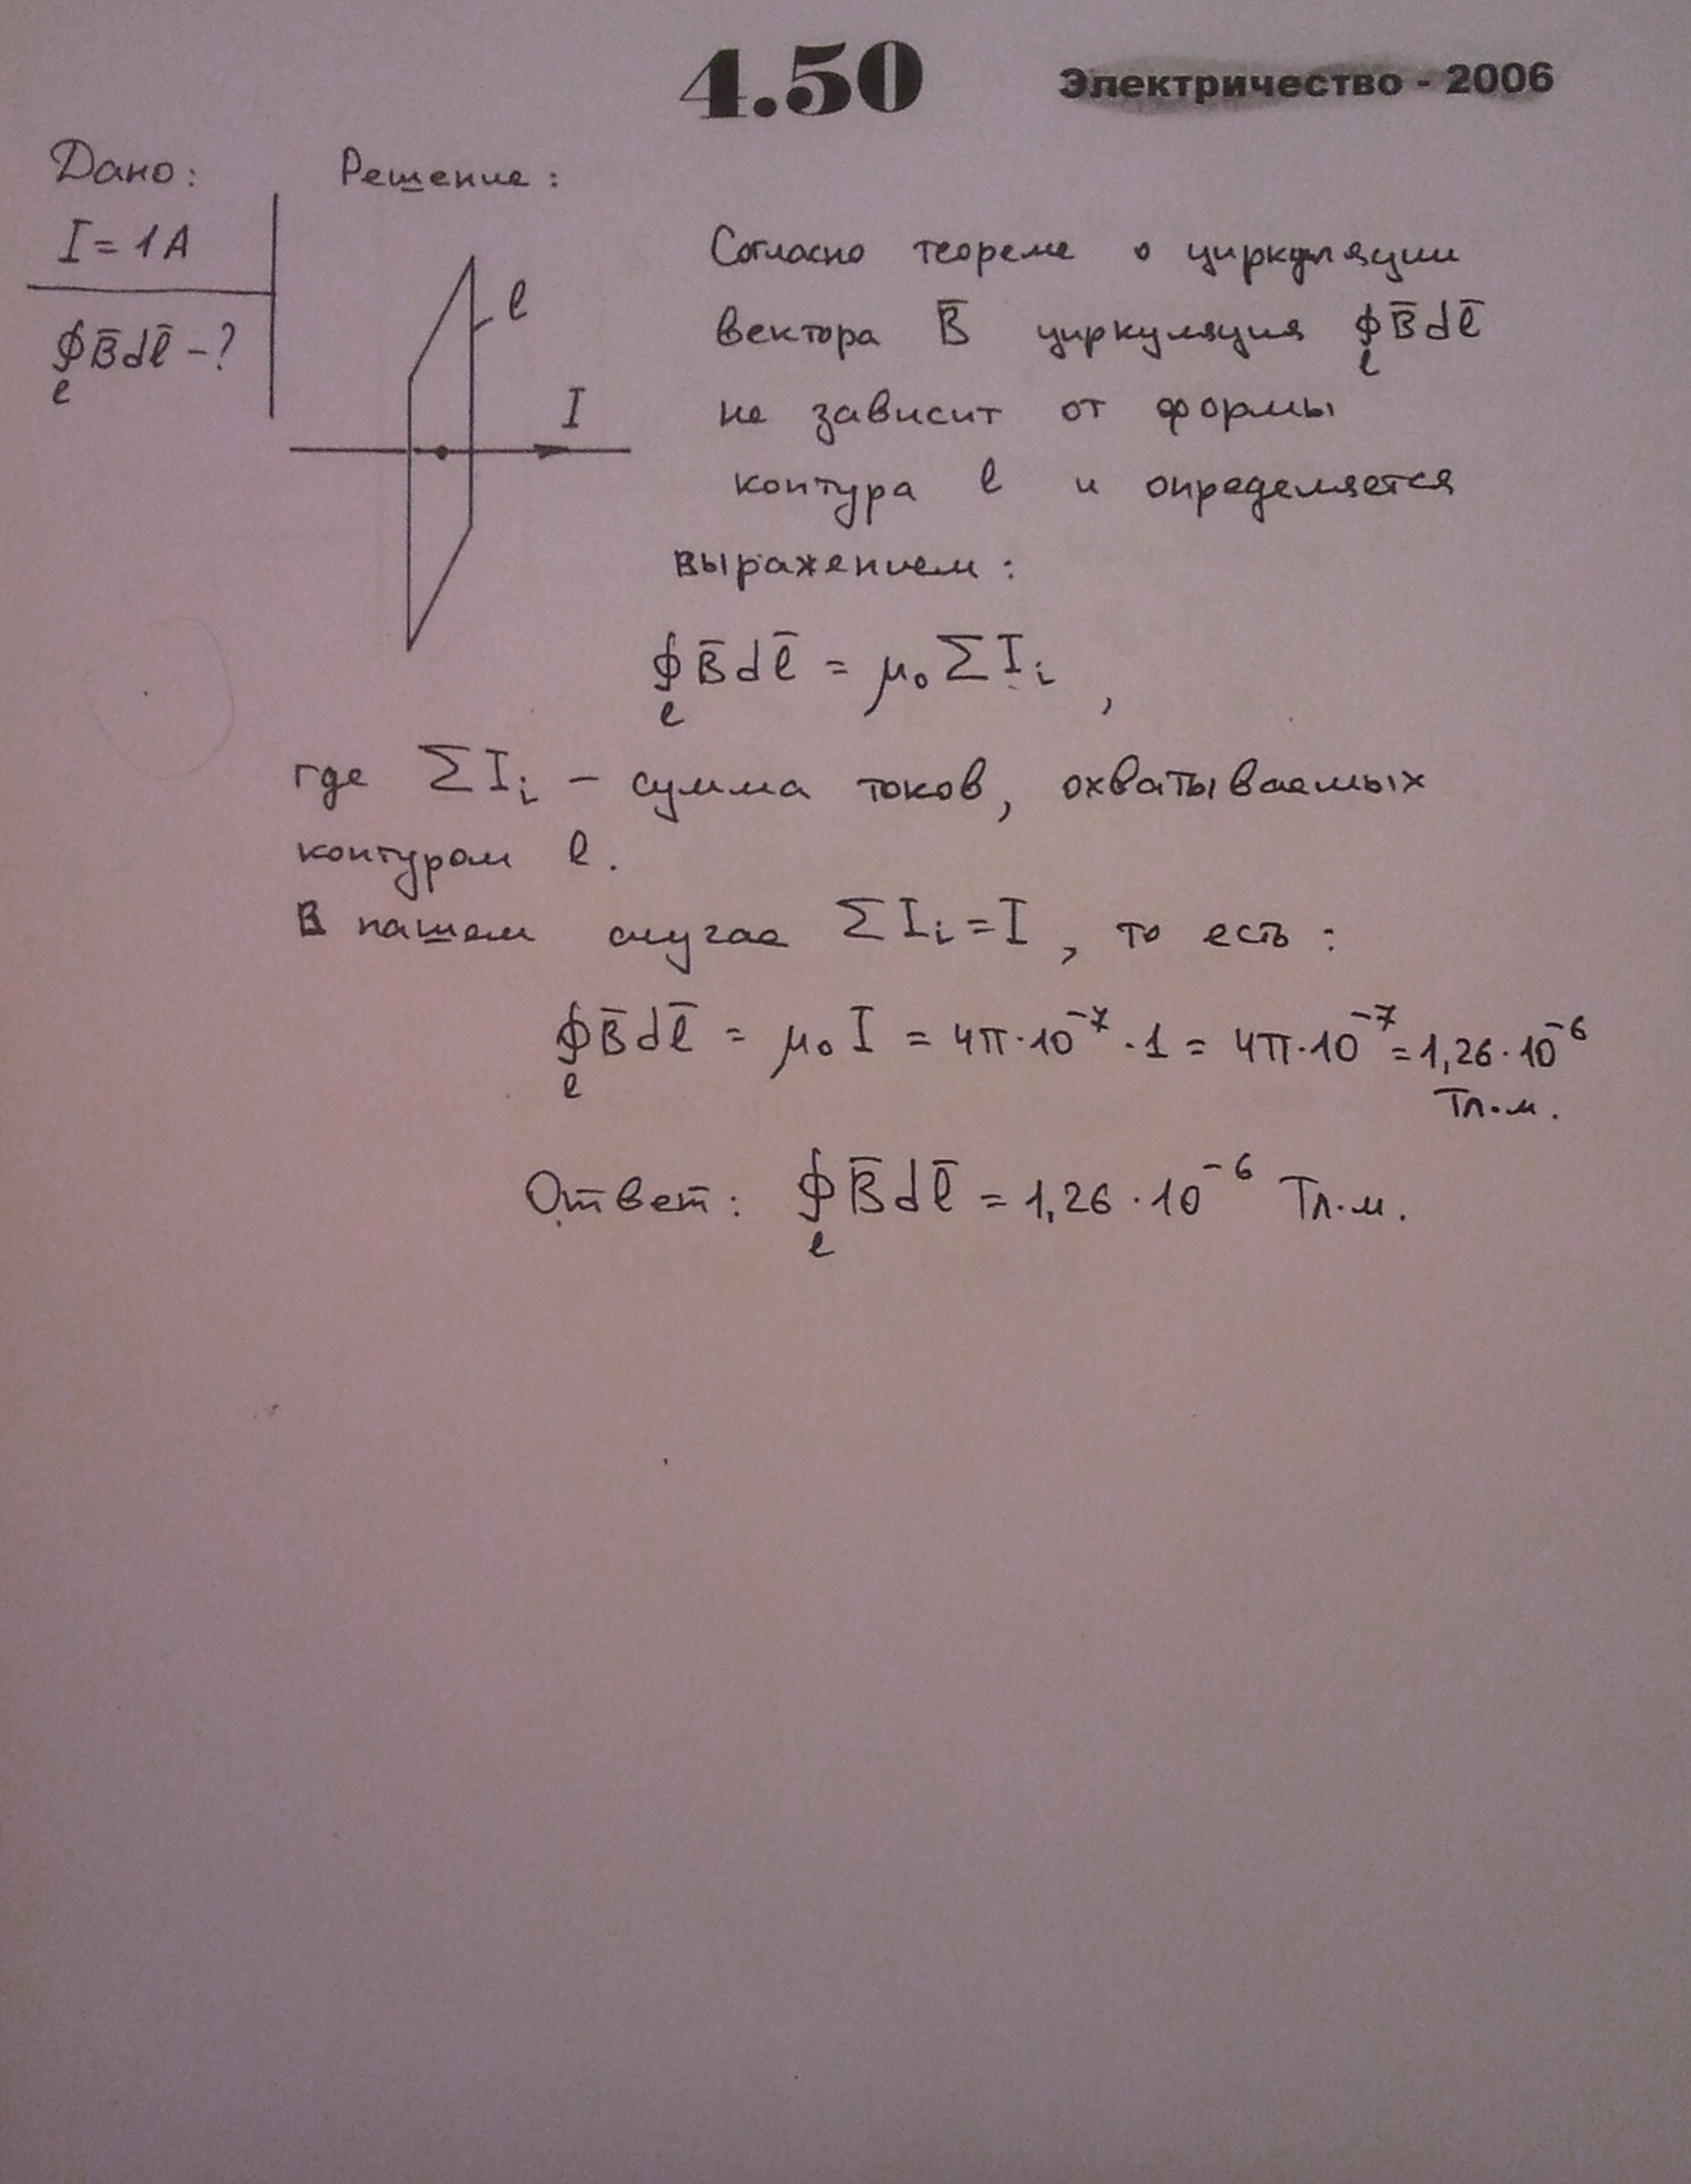 4.50 Электричество - 2006
Дано:
I = 1A
∮B̄dl̄ - ?
l
Решение:
l
I
Согласно теореме о циркуляции
вектора B̄ циркуляция ∮B̄dl̄
l
не зависит от формы
контура l и определяется
выражением:
∮B̄dl̄ = μ₀ΣIᵢ ,
l
где ΣIᵢ - сумма токов, охватываемых
контуром l.
В нашем случае ΣIᵢ = I , то есть :
∮B̄dl̄ = μ₀I = 4π·10⁻⁷·1 = 4π·10⁻⁷ = 1,26·10⁻⁶
l
Тл·м.
Ответ: ∮B̄dl̄ = 1,26·10⁻⁶ Тл·м.
l